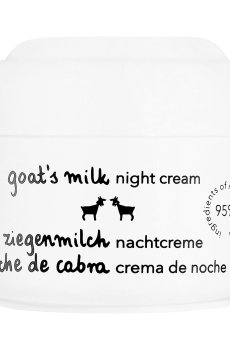 goat's milk night cream
ziegenmilch nachtcreme
che de cabra crema de noche
ingredients of
95%